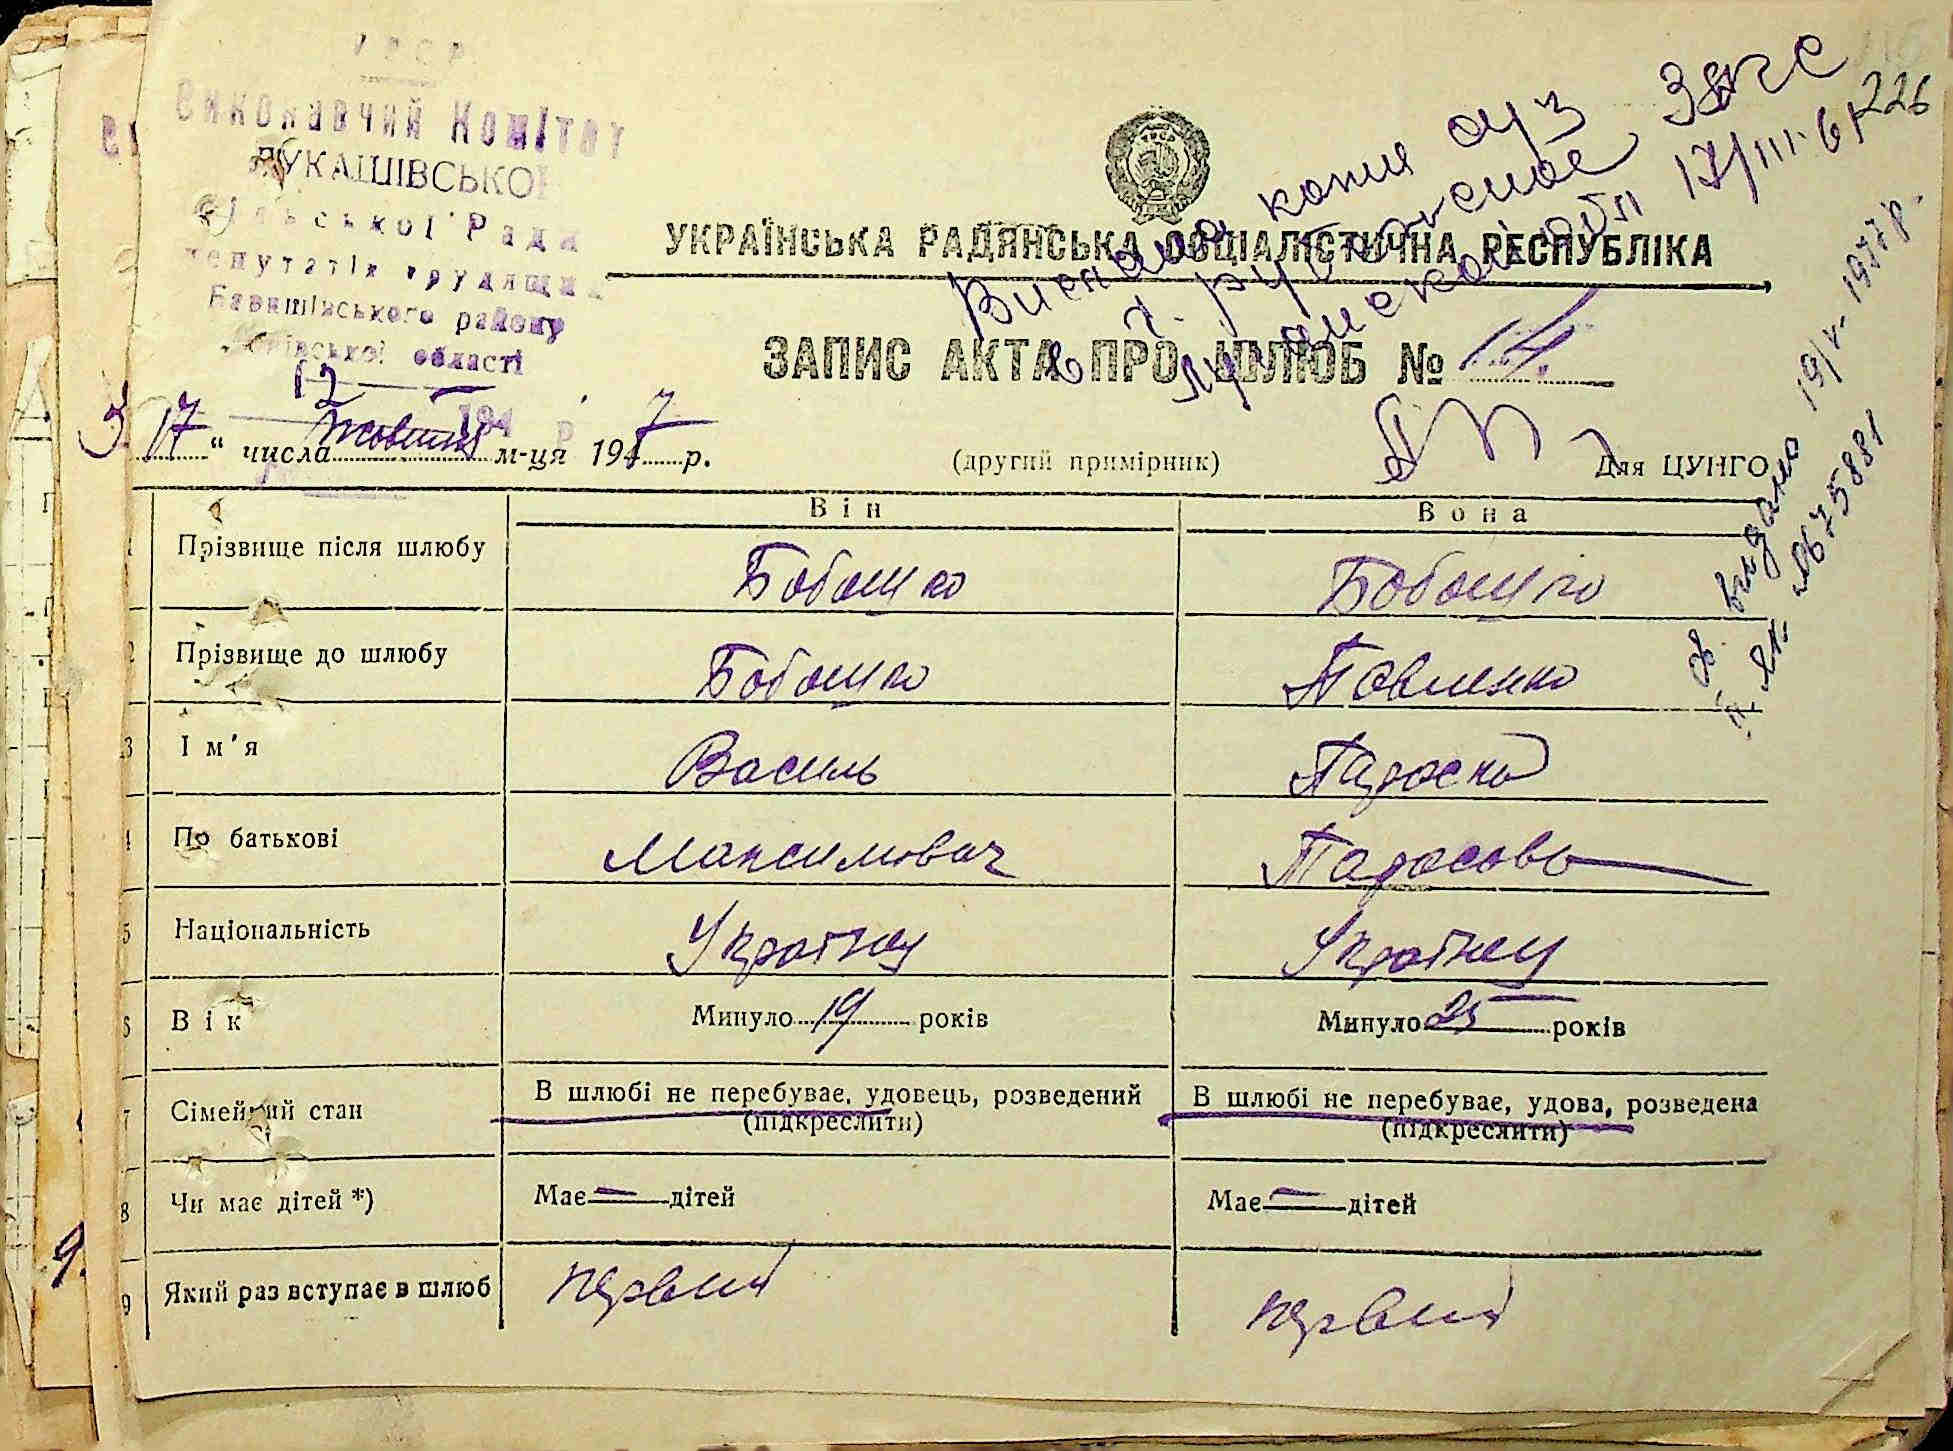 УРСР
Виконавчий Комітет
ЛУКАШІВСЬКОЇ
сільської Ради
депутатів трудящих
Баришівського району
Київської області
12
194 р.
226
Выслана копия
в ЗАГС
17/III-61
19/V-1977р.
видано
675881
УКРАЇНСЬКА РАДЯНСЬКА СОЦІАЛІСТИЧНА РЕСПУБЛІКА
ЗАПИС АКТА ПРО ШЛЮБ № 14.
17 " числа жовтня м-ця 1947 р.
(другий примірник)
Для ЦУНГО
Він Вона
1 Прізвище після шлюбу Бобошко Бобошко
2 Прізвище до шлюбу Бобошко Павленко
3 Ім'я Василь Параска
4 По батькові Максимович Тарасовна
5 Національність Українец Українец
6 Вік Минуло 19 років Минуло 25 років
7 Сімейний стан В шлюбі не перебуває, удовець, розведений В шлюбі не перебуває, удова, розведена
(підкреслити) (підкреслити)
8 Чи має дітей *) Має — дітей Має — дітей
9 Який раз вступає в шлюб первий первий
9.